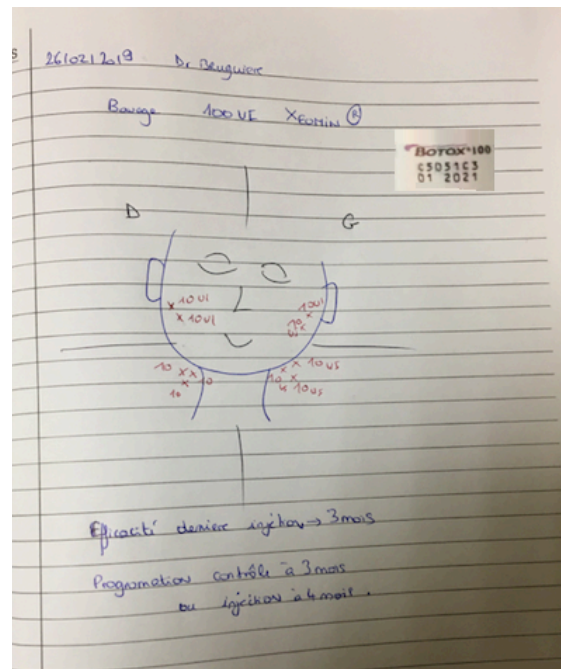 26/02/2019 Dr
Bavage 100 UI XEOMIN ®
BOTOX®100
C5051C3
01 2021
D G
10 UI 10UI
10 UI 10 UI
10 10 UI
10 10
10 10 UI
Efficacité dernière injection → 3 mois
Programation contrôle à 3 mois
ou injection à 4 mois.